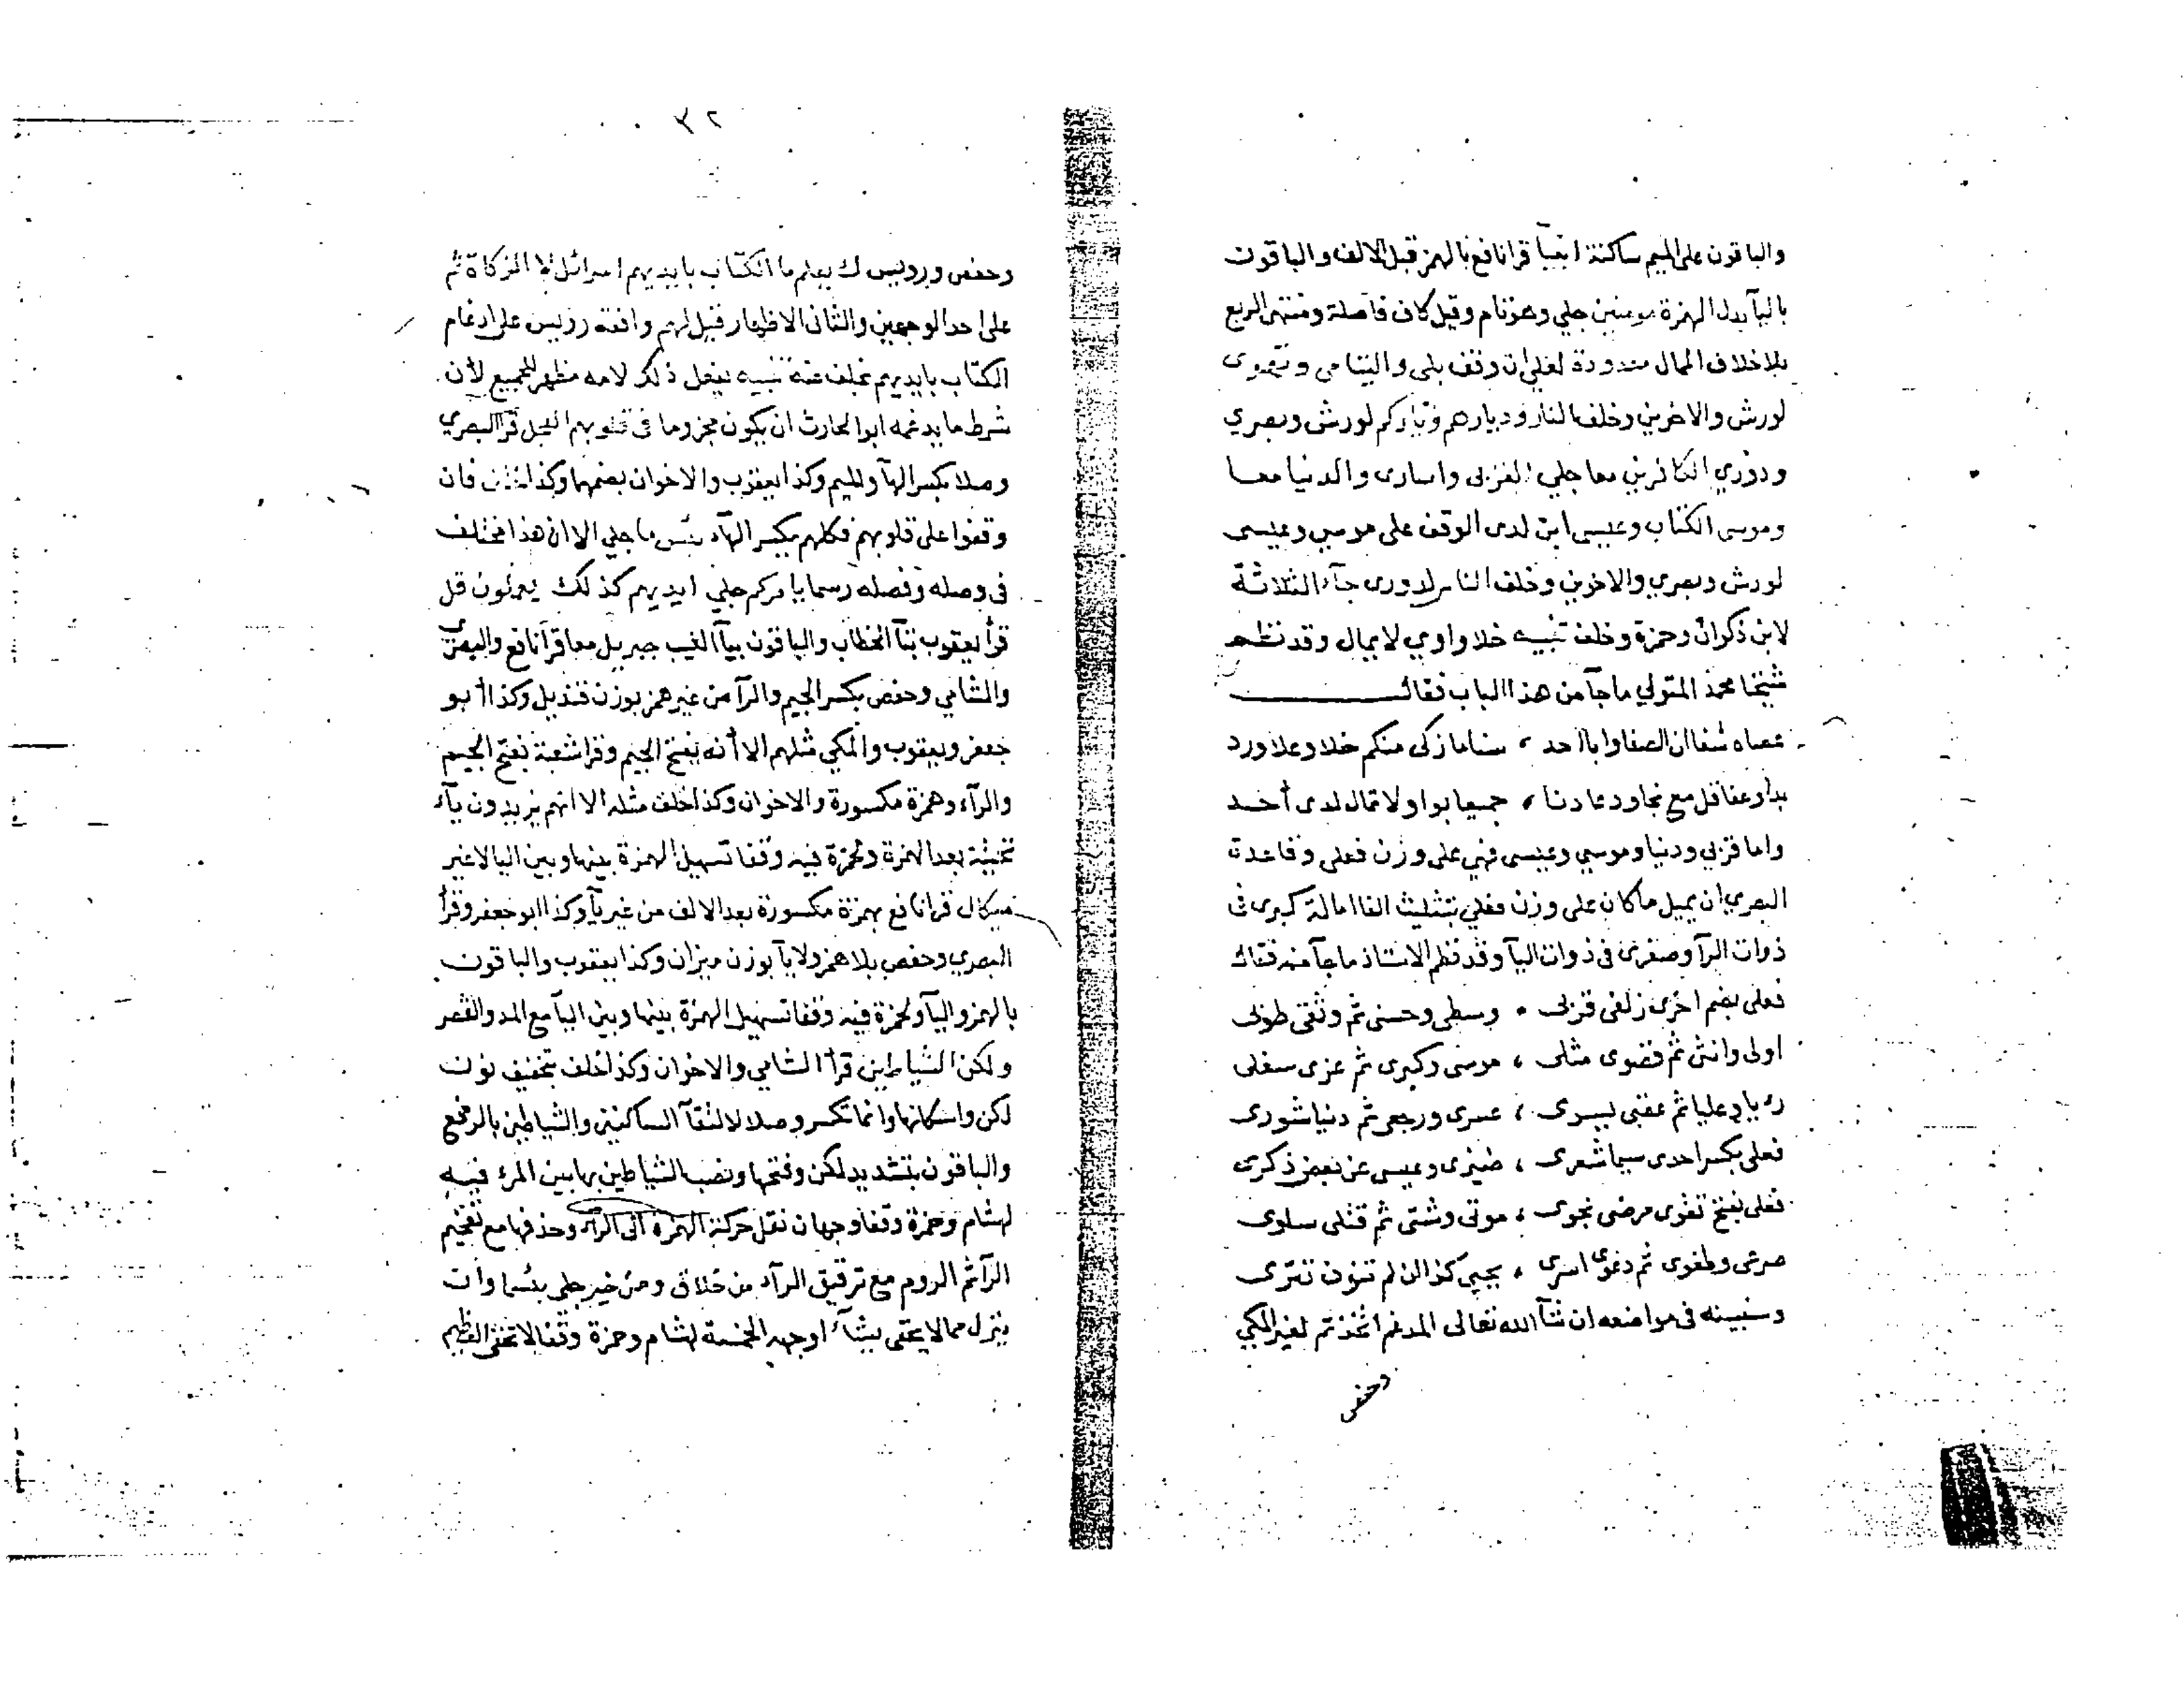 والباقون على الميم ساكنة انبيآ قرا نافع بالهمز قبل الالف والباقون
باليآ بدل الهمزة مومنين جلي وهو تام وقيل كاف فاصلة ومنتهى الربع
بلا خلاف الممال معدودة لعلي ان وقف بلى واليتامى وتهوى
لورش والاخوين وخلف النار ودياركم لورش وبصري
ودوري الكافرين معا جلي القربى واسارى والدنيا معا
وموسى الكتاب وعيسى ابن لدى الوقف على موسى وعيسى
لورش وبصري والاخوين وخلف الناس لدورى جآء الثلاثة
لابن ذكوان وحمزة وخلف تنبيه خلا واوي لا يمال وقد نظم
شيخنا محمد المتولي ما جآ من هذا الباب فقال
عصاه شفا ان الصفا وابا احد ، سنا ما زكى منكم خلا وعلا ورد
بدا وعفا قل مع نجا ودعا دنا ، جميعا بواو لا تمال لدى أحد
واما قربى ودنيا وموسى وعيسى فهي على وزن فعلى وقاعدة
البصري ان يميل ما كان على وزن فعلى بتثليث الفا امالة كبرى فى
ذوات الرآ وصغرى فى ذوات اليآ وقد نظم الاستاذ ما جآ منه فقال
فعلى بضم اخرى زلفى قربى ، وسطى وحسنى ثم وثقى طوبى
اولى وانثى ثم قصوى مثلى ، موسى وكبرى ثم عزى سفلى
رءيا وعليا ثم عقبى يسرى ، عسرى ورجعى ثم دنيا شورى
فعلى بكسر احدى سيما شعرى ، ضيزى وعيسى عن بعض ذكرى
فعلى بفتح تقوى مرضى نجوى ، موتى وشتى ثم قتلى سلوى
صرعى وطغوى ثم دعوى اسرى ، يحيى كذا ان لم تنون تترى
وسنبينه فى مواضعه ان شآ الله تعالى المدغم اتخذتم لغير المكي
وحفص
٣٢
وحفص ورويس لك يعلم ما الكتاب بايديهم اسرائل لا الزكاة ثم
على احد الوجهين والثانى الاظهار قيل لهم وافقه رويس على ادغام
الكتاب بايديهم بخلف عنه تنبيه يفعل ذلك لامه مظهر للجميع لأن
شرط ما يدغمه ابو الحارث ان يكون مجزوما فى قلوبهم العجل قرأ البصري
وصلا بكسر الهآ والميم وكذا يعقوب والاخوان بضمها وكذا خلف فان
وقفوا على قلوبهم فكلهم بكسر الهآء بئس ما جلي الا ان هذا مختلف
فى وصله وفصله رسما يامركم جلي ايديهم كذلك يعملون قل
قرأ يعقوب بتآ الخطاب والباقون بيآ الغيب جبريل معا قرأ نافع والبصرى
والشامي وحفص بكسر الجيم والرآ من غير همز بوزن قنديل وكذا أبو
جعفر ويعقوب والمكي مثلهم الا أنه بفتح الجيم وقرا شعبة بفتح الجيم
والرآء وهمزة مكسورة والاخوان وكذا خلف مثله الا انهم يزيدون يآء
تحتية بعد الهمزة ولحمزة فيه وقفا تسهيل الهمزة بينها وبين اليا لاغير
ميكال قرا نافع بهمزة مكسورة بعد الالف من غير يآ وكذا ابو جعفر وقرأ
البصري وحفص بلا همز ولا يآ بوزن ميزان وكذا يعقوب والباقون
بالهمز واليآ ولحمزة فيه وقفا تسهيل الهمزة بينها وبين اليآ مع المد والقصر
ولكن الشياطين قرأ الشامي والاخوان وكذا خلف بتخفيف نون
لكن واسكانها وانما تكسر وصلا لالتقآ الساكنين والشياطين بالرفع
والباقون بتشديد لكن وفتحها ونصب الشياطين بها بين المرء فيه
لهشام وحمزة وقفا وجهان نقل حركة الهمزة الى الرآء وحذفها مع تفخيم
الرآ ثم الروم مع ترقيق الرآء من خلاق ومن خير جلي بئسما وأن
ينزل مما لا يخفى يشآء اوجهه الخمسة لهشام وحمزة وقفا لا تخفى العظيم